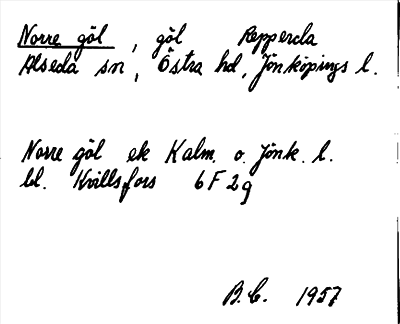 Norre göl, göl Repperda
Alseda sn, Östra hd, Jönköpings l.
Norre göl ek Kalm. o. Jönk. l.
bl. Kvillsfors 6F 2g
B.C. 1957